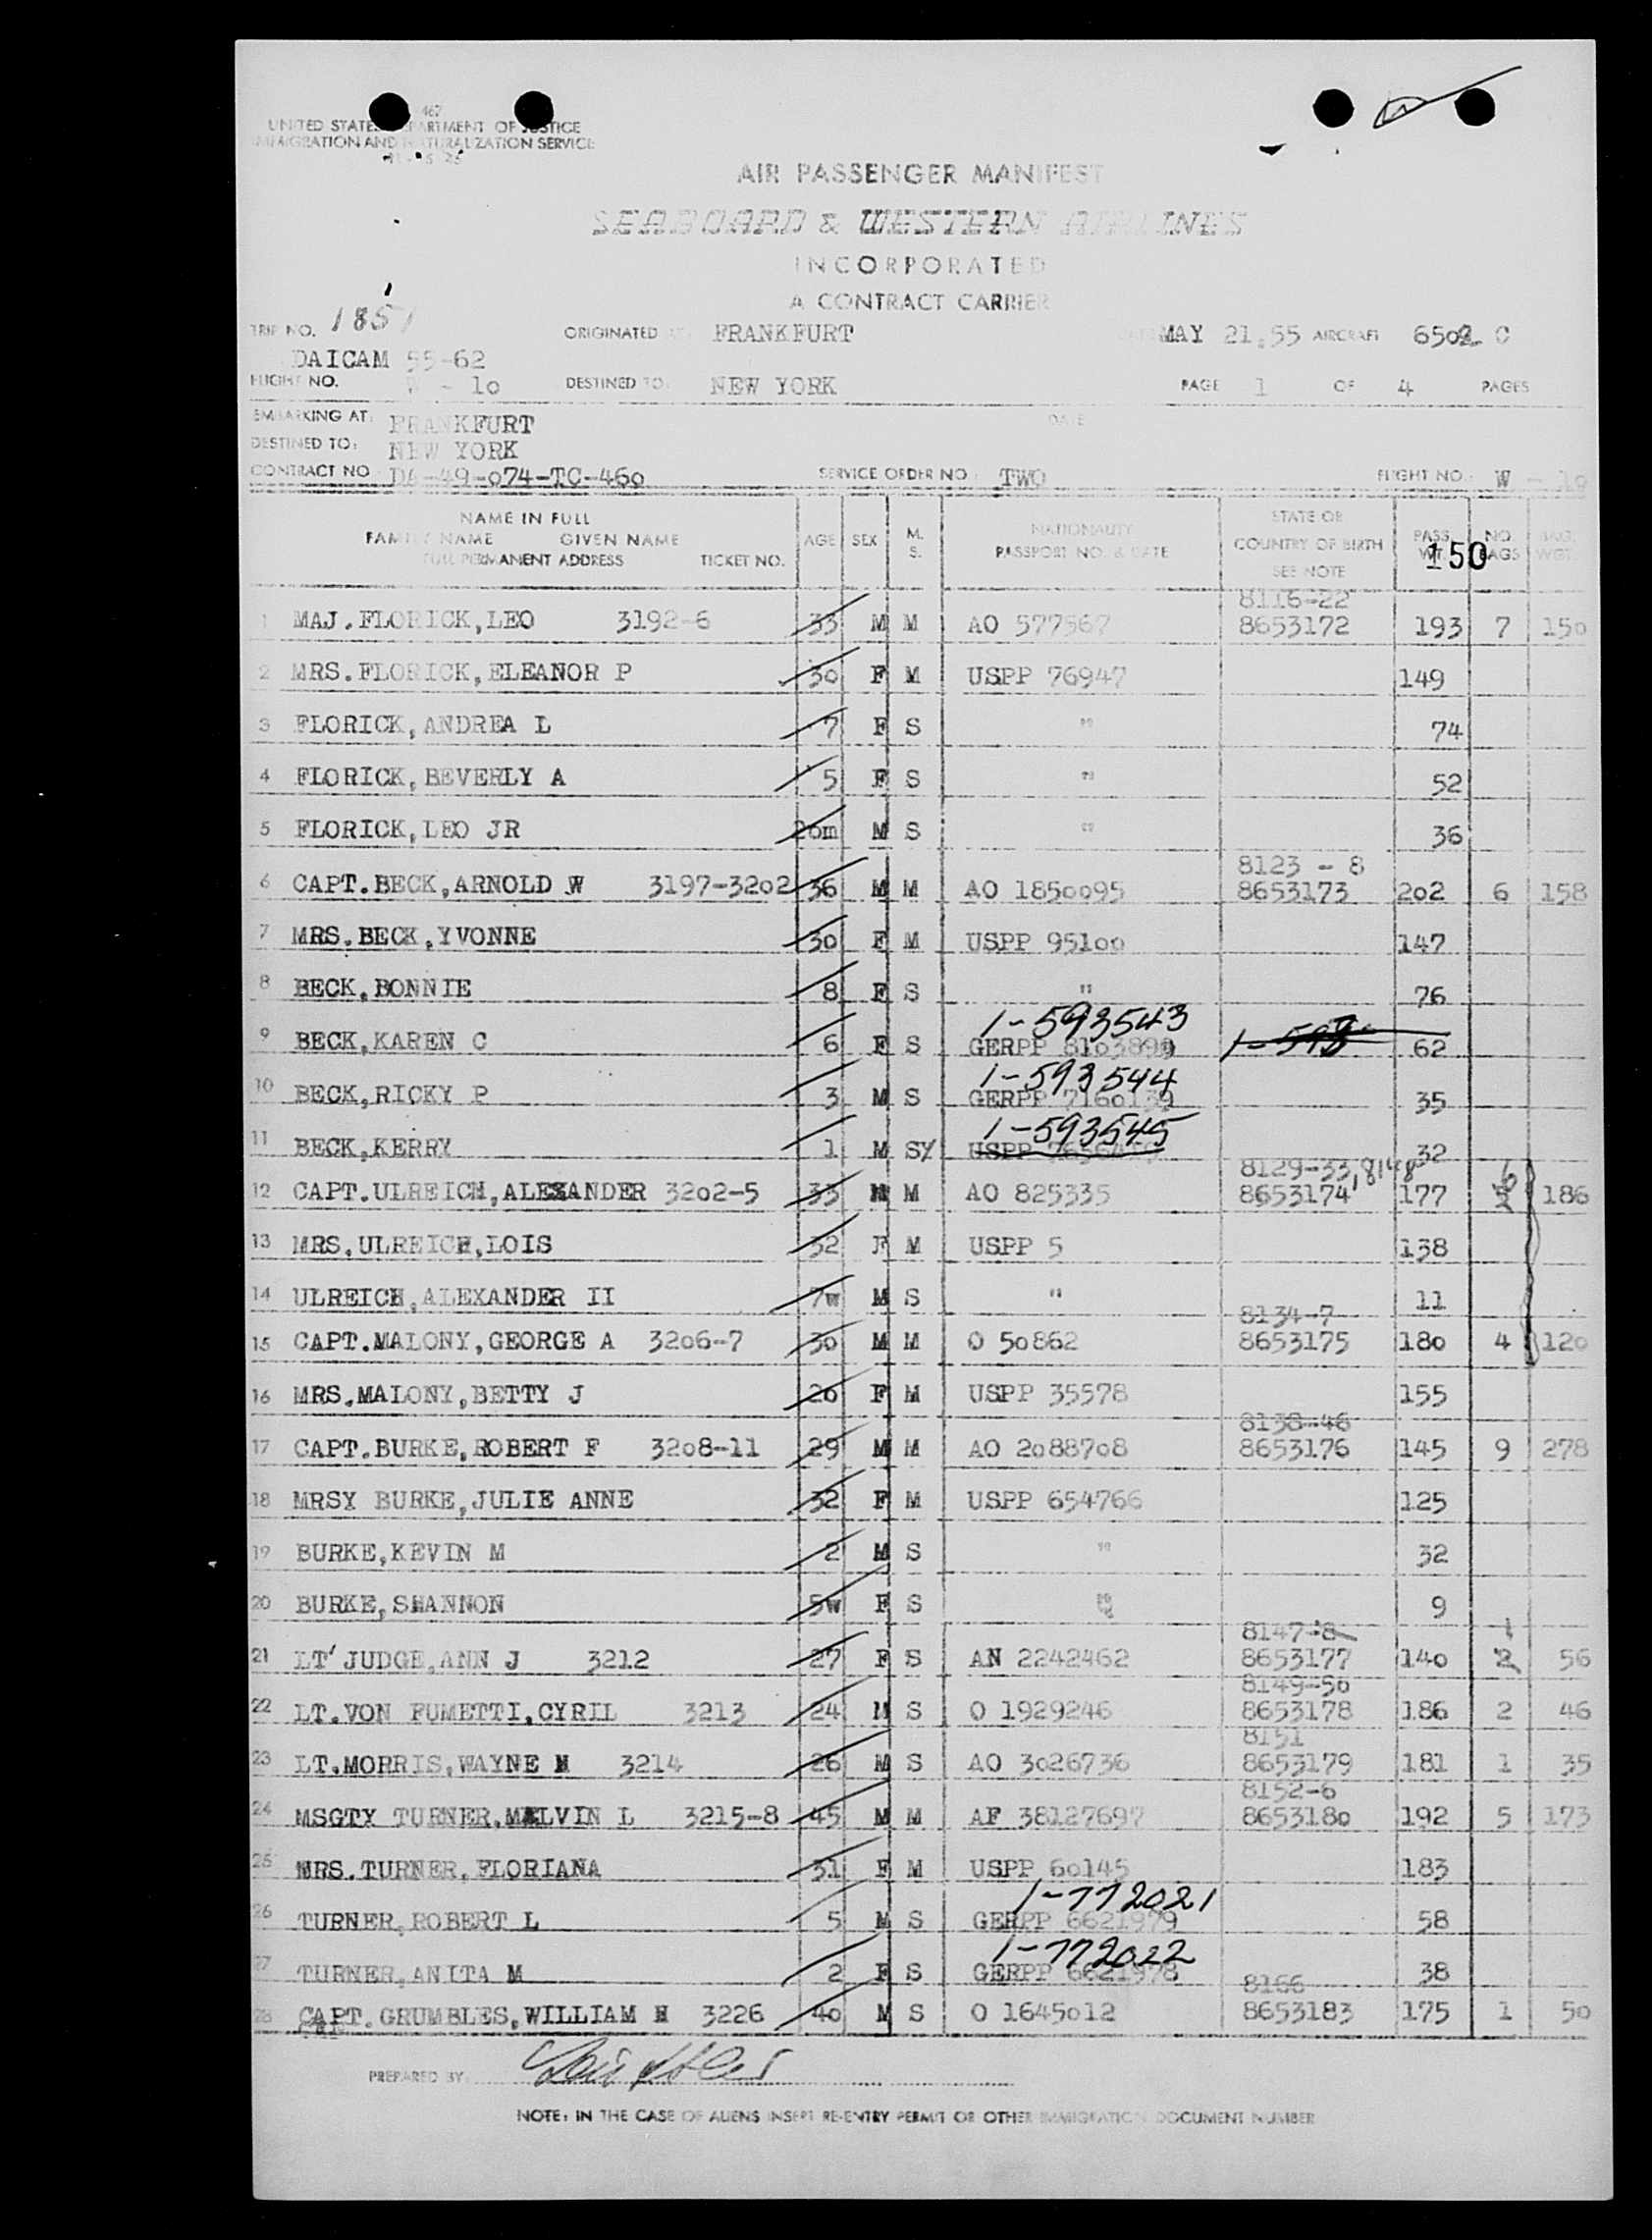 467
UNITED STATES DEPARTMENT OF JUSTICE
IMMIGRATION AND NATURALIZATION SERVICE
AIR PASSENGER MANIFEST
SEABOARD & WESTERN AIRLINES
INCORPORATED
A CONTRACT CARRIER
TRIP NO. 1851 ORIGINATED FRANKFURT MAY 21.55 AIRCRAFT 6502 C
DAICAM 55-62
FLIGHT NO. W - 10 DESTINED TO: NEW YORK PAGE 1 OF 4 PAGES
EMBARKING AT: FRANKFURT DATE
DESTINED TO: NEW YORK
CONTRACT NO. DA-49-074-TC-460 SERVICE ORDER NO.: TWO FLIGHT NO.: W - 10
NAME IN FULL
FAMILY NAME GIVEN NAME
FULL PERMANENT ADDRESS TICKET NO. AGE SEX M. S. NATIONALITY PASSPORT NO. & DATE STATE OR COUNTRY OF BIRTH SEE NOTE PASS. WT. NO. BAGS BAG. WGT.
150
8116-22
1 MAJ.FLORICK,LEO 3192-6 33 M M AO 577567 8653172 193 7 150
2 MRS.FLORICK,ELEANOR P 30 F M USPP 76947 149
3 FLORICK,ANDREA L 7 F S " 74
4 FLORICK,BEVERLY A 5 F S " 52
5 FLORICK,LEO JR 26m M S " 36
8123 - 8
6 CAPT.BECK,ARNOLD W 3197-3202 36 M M AO 1850095 8653173 202 6 158
7 MRS.BECK,YVONNE 30 F M USPP 95100 147
8 BECK,BONNIE 8 F S " 76
1-593543
9 BECK,KAREN C 6 F S GERPP 8103899 1-593 62
1-593544
10 BECK,RICKY P 3 M S GERPP 7160139 35
1-593545
11 BECK,KERRY 1 M SY USPP 32
8129-33,8148 6
12 CAPT.ULREICH,ALEXANDER 3202-5 33 M M AO 825335 8653174 177 5 186
13 MRS.ULREICH,LOIS 32 F M USPP 5 138
14 ULREICH,ALEXANDER II 7w M S " 11
8134-7
15 CAPT.MALONY,GEORGE A 3206-7 30 M M O 50862 8653175 180 4 120
16 MRS.MALONY,BETTY J 26 F M USPP 35578 155
8138-46
17 CAPT.BURKE,ROBERT F 3208-11 29 M M AO 2088708 8653176 145 9 278
18 MRSY BURKE,JULIE ANNE 32 F M USPP 654766 125
19 BURKE,KEVIN M 2 M S " 32
20 BURKE,SHANNON 5w F S " 9
8147-8 1
21 LT JUDGE,ANN J 3212 27 F S AN 2242462 8653177 140 2 56
8149-50
22 LT.VON FUMETTI,CYRIL 3213 24 M S O 1929246 8653178 186 2 46
8151
23 LT.MORRIS,WAYNE M 3214 26 M S AO 3026736 8653179 181 1 35
8152-6
24 MSGTY TURNER,MALVIN L 3215-8 45 M M AF 38127697 8653180 192 5 173
25 MRS.TURNER,FLORIANA 31 F M USPP 60145 183
1-772021
26 TURNER,ROBERT L 5 M S GERPP 6621979 58
1-772022
27 TURNER,ANITA M 2 F S GERPP 6621978 38
8166
28 CAPT.GRUMBLES,WILLIAM H 3226 40 M S O 1645012 8653183 175 1 50
PREPARED BY
NOTE: IN THE CASE OF ALIENS INSERT RE-ENTRY PERMIT OR OTHER IMMIGRATION DOCUMENT NUMBER